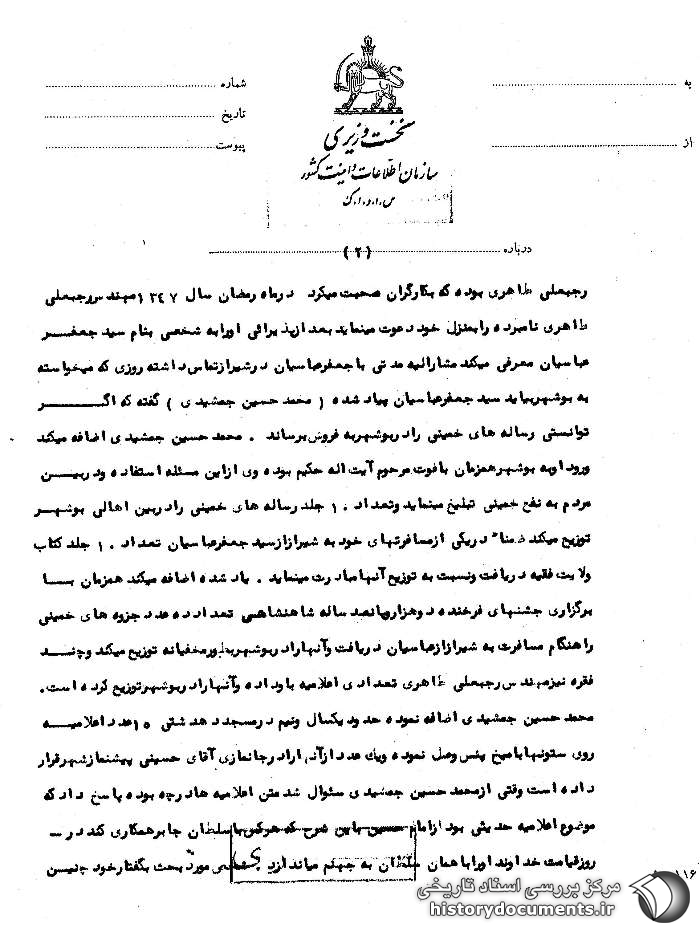 به
از
شماره
تاریخ
پیوست
نخست وزیری
سازمان اطلاعات و امنیت کشور
س.ا.و.ا.ک
درباره (۲)
رجبعلی طاهری بوده که بکارگران صحبت میکرد در ماه رمضان سال ۱۳۴۷ مهندس رجبعلی
طاهری نامبرده را بمنزل خود دعوت مینماید بعد از پذیرائی او را به شخصی بنام سید جعفر
عباسیان معرفی میکند مشارالیه مدتی با جعفر عباسیان در شیراز تماس داشته روزی که میخواسته
به بوشهر بیاید سید جعفر عباسیان بیاد شده ( محمد حسین جمشیدی ) گفته که اگر
توانستی رساله های خمینی را در بوشهر به فروش برساند . محمد حسین جمشیدی اضافه میکند
ورود او به بوشهر همزمان با فوت مرحوم آیت اله حکیم بوده وی از این مسئله استفاده و در بین
مردم به نفع خمینی تبلیغ مینماید و تعداد ۱۰ جلد رساله های خمینی را در بین اهالی بوشهر
توزیع میکند ضمناً در یکی از مسافرتهای خود به شیراز از سید جعفر عباسیان تعداد ۱۰ جلد کتاب
ولایت فقیه دریافت و نسبت به توزیع آنها مبادرت مینماید . یاد شده اضافه میکند همزمان با
برگزاری جشنهای فرخنده دو هزار و پانصد ساله شاهنشاهی تعداد ده عدد جزوه های خمینی
را هنگام مسافرت به شیراز از عباسیان دریافت و آنها را در بوشهر بطور مخفیانه توزیع میکند و چند
فقره نیز مهندس رجبعلی طاهری تعدادی اعلامیه باو داده و آنها را در بوشهر توزیع کرده است .
محمد حسین جمشیدی اضافه نموده حدود یکسال و نیم در مسجد دهدشتی ۱۵ عدد اعلامیه
روی ستونها با میخ پنس وصل نموده و یک عدد از آنها را در جانمازی آقای حسینی پیشنماز شهر قرار
داده است وقتی از محمد حسین جمشیدی سئوال شد متن اعلامیه ها در چه بوده پاسخ داد که
موضوع اعلامیه حدیثی بود از امام حسین باین شرح که هر کس با سلطان جابر همکاری کند در
روز قیامت خداوند او را با همان سلطان به جهنم میاندازد مورد بحث بگفتار خود چنین
۱۱۶
مرکز بررسی اسناد تاریخی
historydocuments.ir